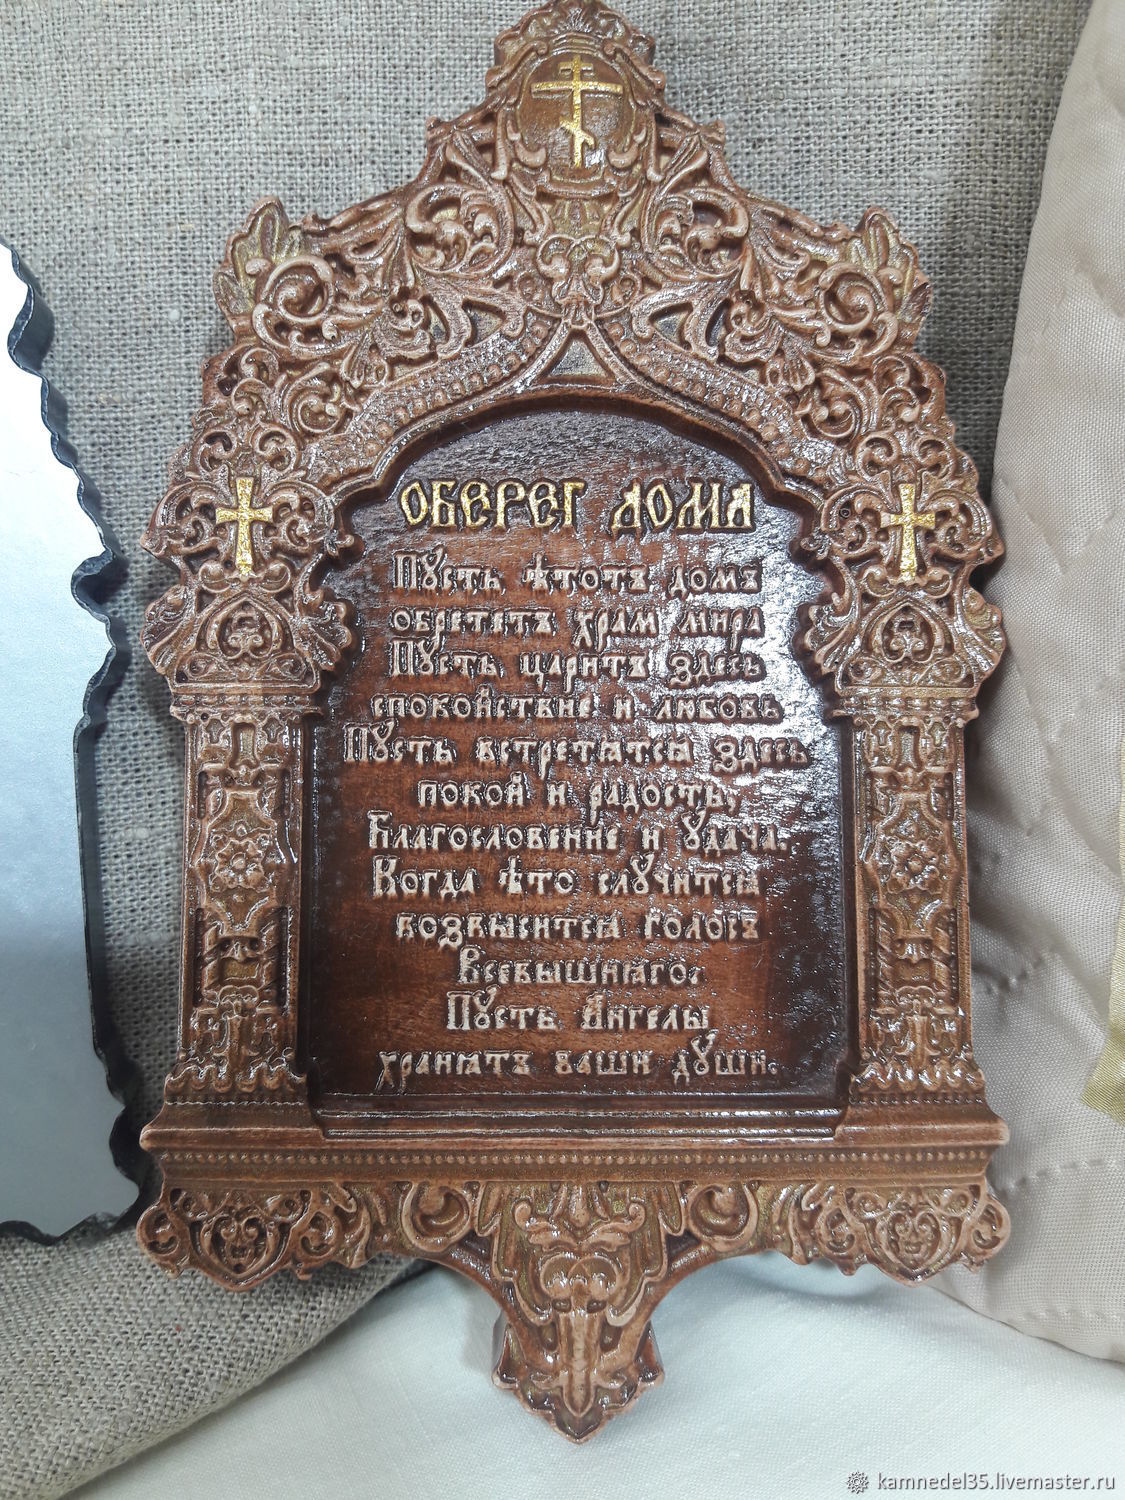 ОБЕРЕГ ДОМА
Пусть ѣтотъ домъ
обрететъ храм мира
Пусть царитъ здесь
спокойствие и любовь
Пусть встретятся здесь
покой и радость,
Благословение и удача.
Когда ѣто случится
возвысится голосъ
Всевышняго.
Пусть Ангелы
хранятъ ваши души.
kamnedel35.livemaster.ru